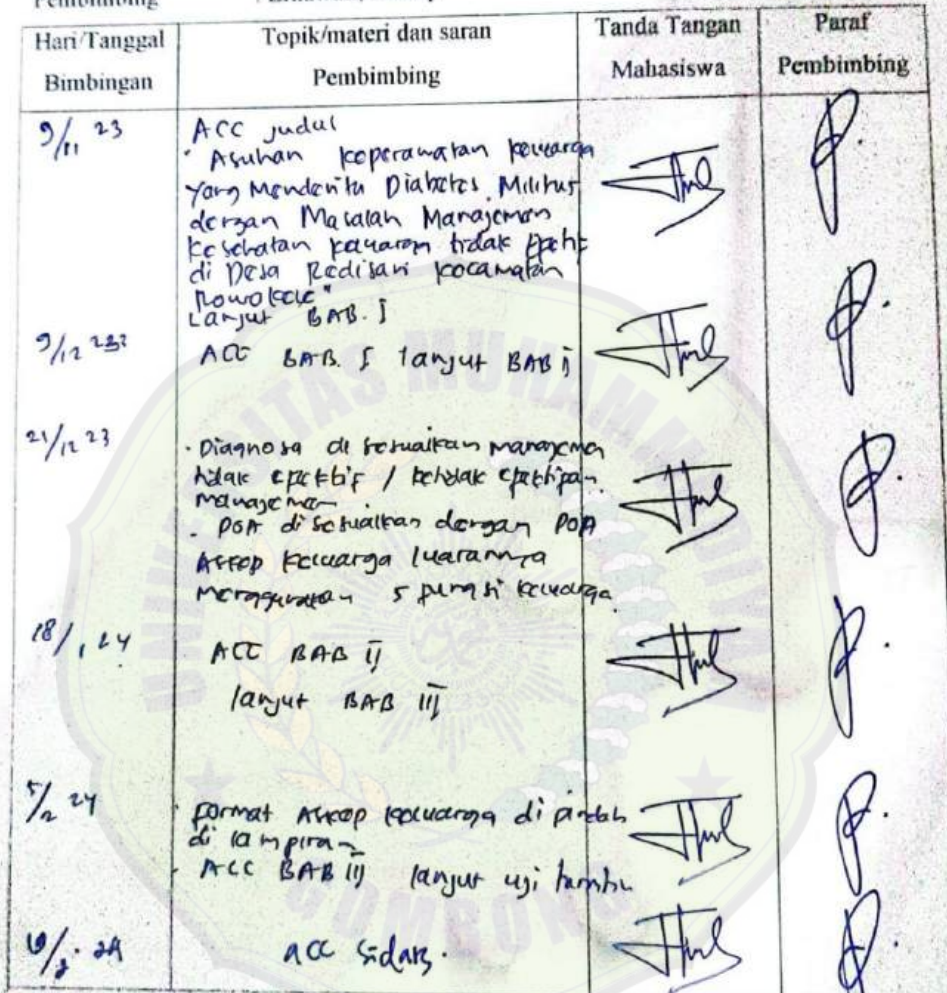 Pembimbing
Hari/Tanggal Bimbingan
Topik/materi dan saran Pembimbing
Tanda Tangan Mahasiswa
Paraf Pembimbing
9/11 23
ACC judul
" Asuhan keperawatan keluarga
yang Menderita Diabetes Militus
dengan Masalah Manajemen
kesehatan keluarga tidak Epektif
di Desa Redisari kecamatan
Rowokele"
Lanjut BAB. I
9/12 23
ACC BAB. I lanjut BAB II
21/12 23
. Diagnosa di sesuaikan manajemen
tidak epektif / ketidak epektipan
manajemen
. POA di sesuaikan dengan POA
Askep keluarga luarannya
menggunakan 5 pungsi keluarga.
18/1 24
ACC BAB II
lanjut BAB III
5/2 24
. format Askep keluarga di pindah
di lampiran
. ACC BAB III lanjut uji
acc sidang.
UNIVERSITAS MUHAMMADIYAH
GOMBONG